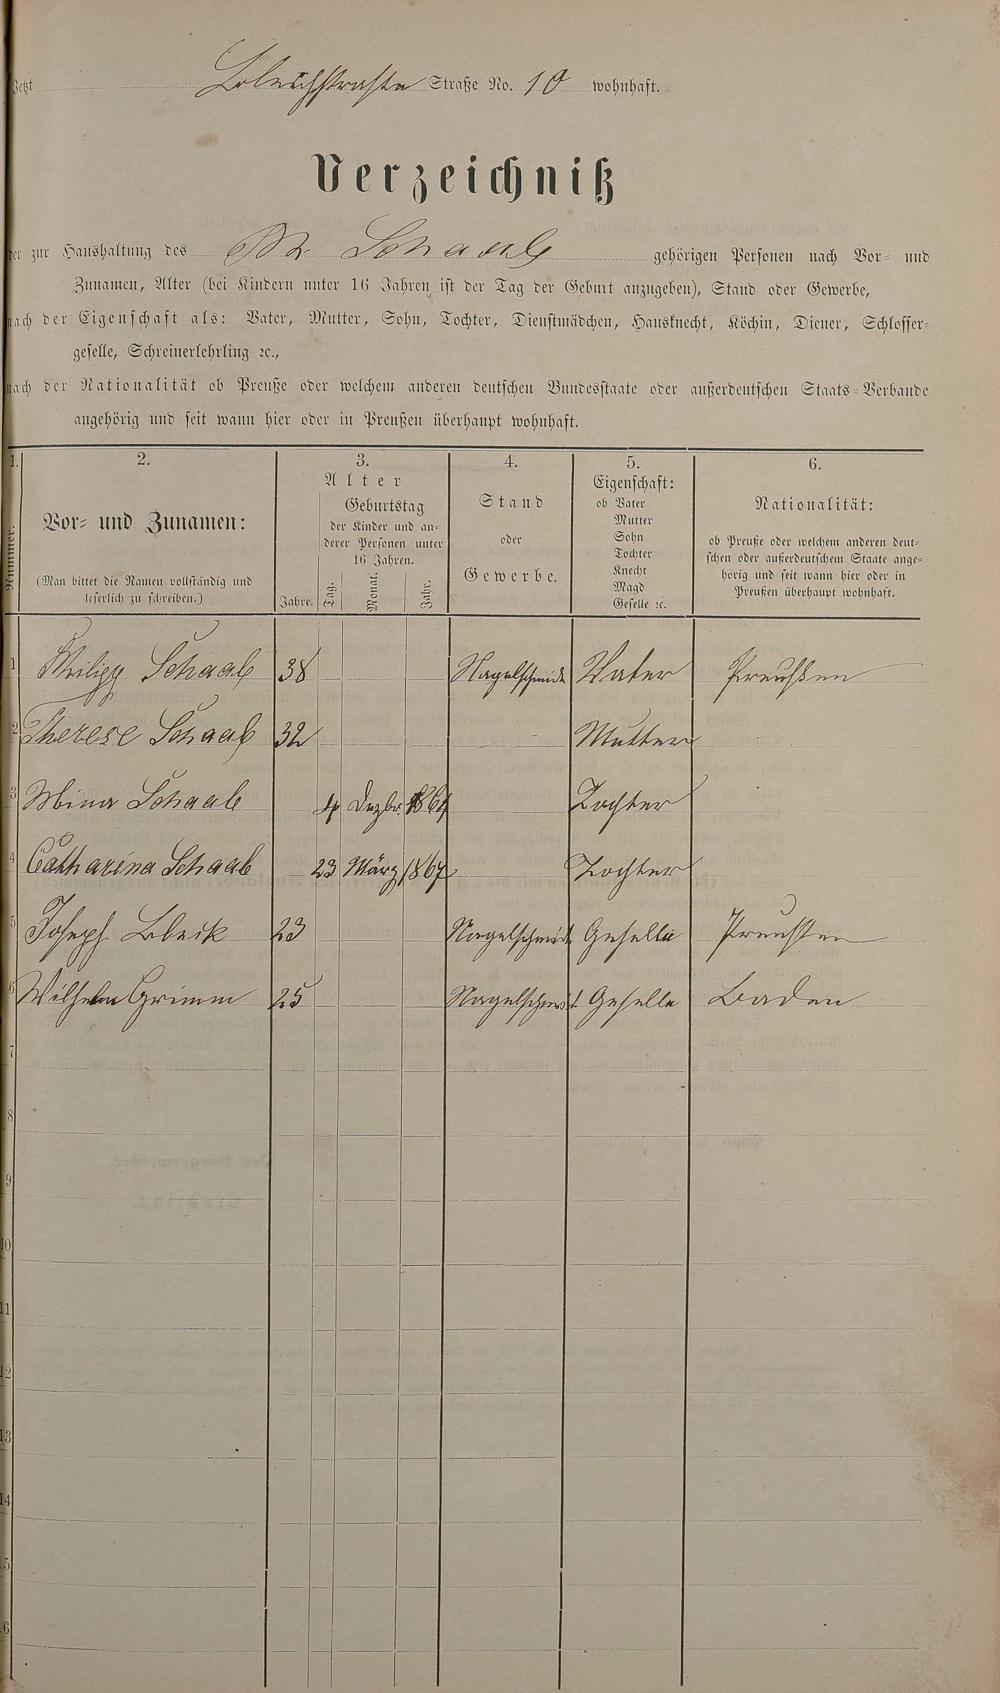 Jetzt Bleichstraße Straße No. 10 wohnhaft.
Verzeichniß
der zur Haushaltung des Schaab gehörigen Personen nach Vor- und
Zunamen, Alter (bei Kindern unter 16 Jahren ist der Tag der Geburt anzugeben), Stand oder Gewerbe,
nach der Eigenschaft als: Vater, Mutter, Sohn, Tochter, Dienstmädchen, Hausknecht, Köchin, Diener, Schlosser-
geselle, Schreinerlehrling ꝛc.,
nach der Nationalität ob Preuße oder welchem anderen deutschen Bundesstaate oder außerdeutschen Staats-Verbande
angehörig und seit wann hier oder in Preußen überhaupt wohnhaft.
1. 2. 3. 4. 5. 6.
Nummer.
Vor- und Zunamen:
(Man bittet die Namen vollständig und
leserlich zu schreiben.)
Alter
Jahre.
Geburtstag
der Kinder und an-
derer Personen unter
16 Jahren.
Tag. Monat. Jahr.
Stand
oder
Gewerbe.
Eigenschaft:
ob Vater
Mutter
Sohn
Tochter
Knecht
Magd
Geselle ꝛc.
Nationalität:
ob Preuße oder welchem anderen deut-
schen oder außerdeutschem Staate ange-
hörig und seit wann hier oder in
Preußen überhaupt wohnhaft.
1 Philipp Schaab 38 Nagelschmidt Vater Preußen
2 Therese Schaab 32 Mutter
3 Mina Schaab 4 Dezbr. 1864 Tochter
4 Catharina Schaab 23 März 1867 Tochter
5 Joseph 23 Nagelschmidt Geselle Preußen
6 Wilhelm Grimm 25 Nagelschmidt Geselle Baden
7
8
9
10
11
12
13
14
15
16